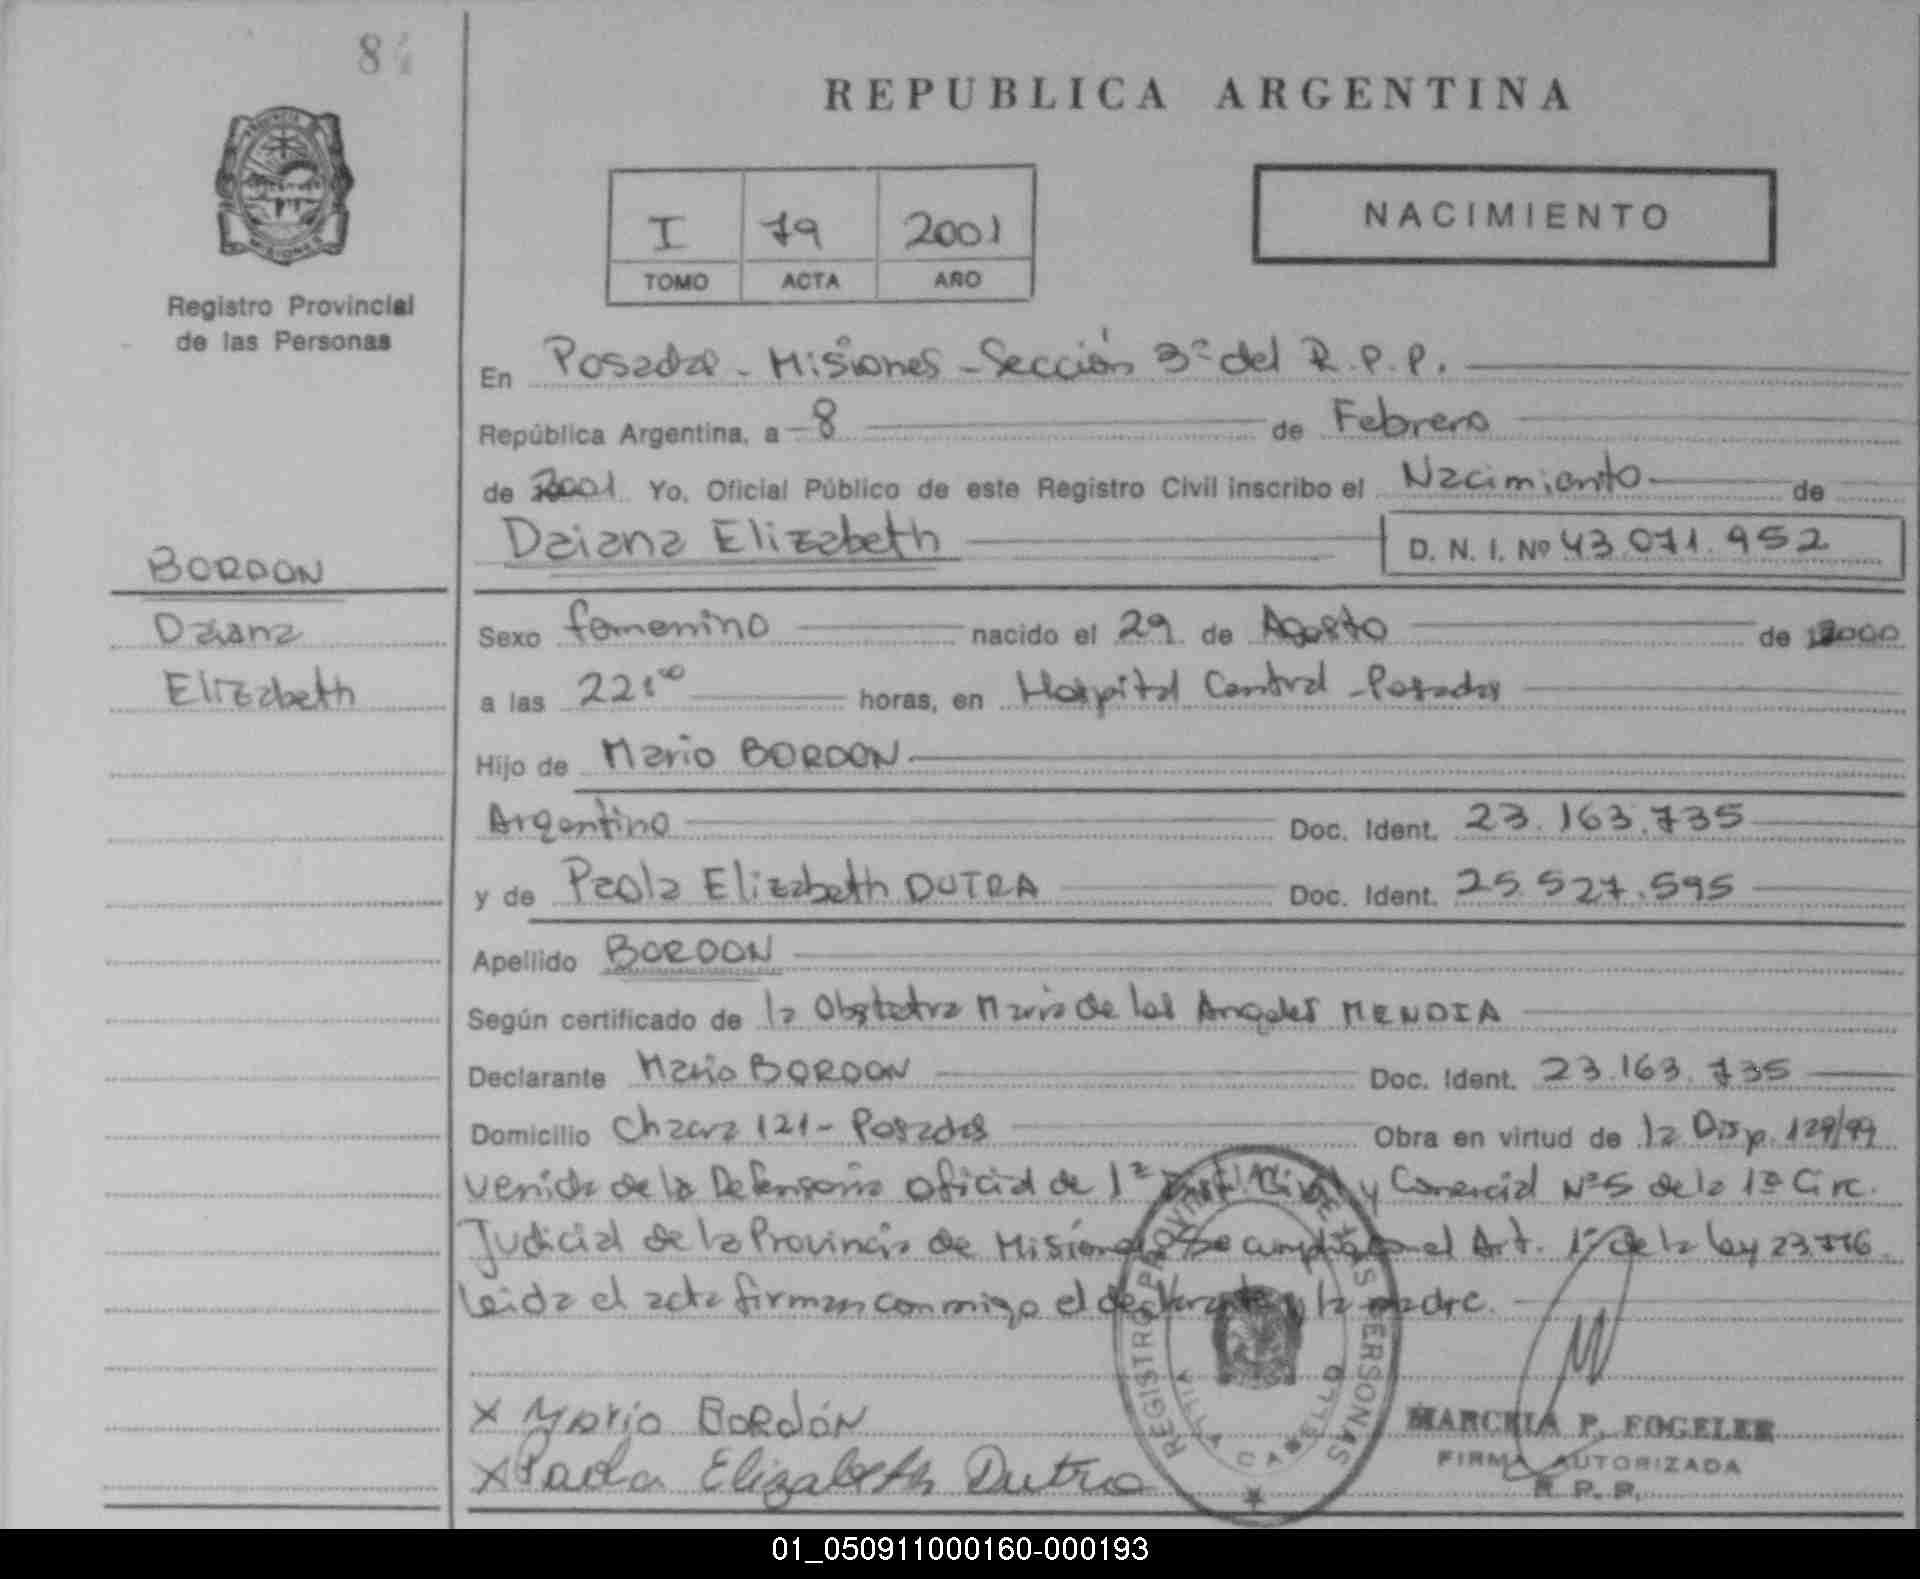 84
REPUBLICA ARGENTINA
I 79 2001
TOMO ACTA AÑO
NACIMIENTO
Registro Provincial
de las Personas
En Posadas - Misiones - Sección 3ª del R.P.P.
República Argentina, a 8 de Febrero
de 2001 Yo, Oficial Público de este Registro Civil inscribo el Nacimiento de
Daiana Elizabeth D. N. I. Nº 43.071.952
BORDON
Daiana
Elizabeth
Sexo femenino nacido el 29 de Agosto de 2000
a las 22:00 horas, en Hospital Central - Posadas
Hijo de Mario BORDON
Argentino Doc. Ident. 23.163.735
y de Paola Elizabeth DUTRA Doc. Ident. 25.527.595
Apellido BORDON
Según certificado de la Obstetra Maria de los Angeles MENDIA
Declarante Mario BORDON Doc. Ident. 23.163.735
Domicilio Chacra 121 - Posadas Obra en virtud de la Disp. 129/99
venida de la Defensoria oficial de 1ª Inst. Civil y Comercial Nº5 de la 1ª Circ.
Judicial de la Provincia de Misiones Se cumplió con el Art. 1º de la ley 23.776
Leida el acta firman conmigo el declarante y la madre.
REGISTRO PROVINCIAL DE LAS PERSONAS
VILLA CABELLO
X Mario BORDÓN
X Paola Elizabeth Dutra
MARCELA P. FOGELER
FIRMA AUTORIZADA
R. P. P.
01_050911000160-000193